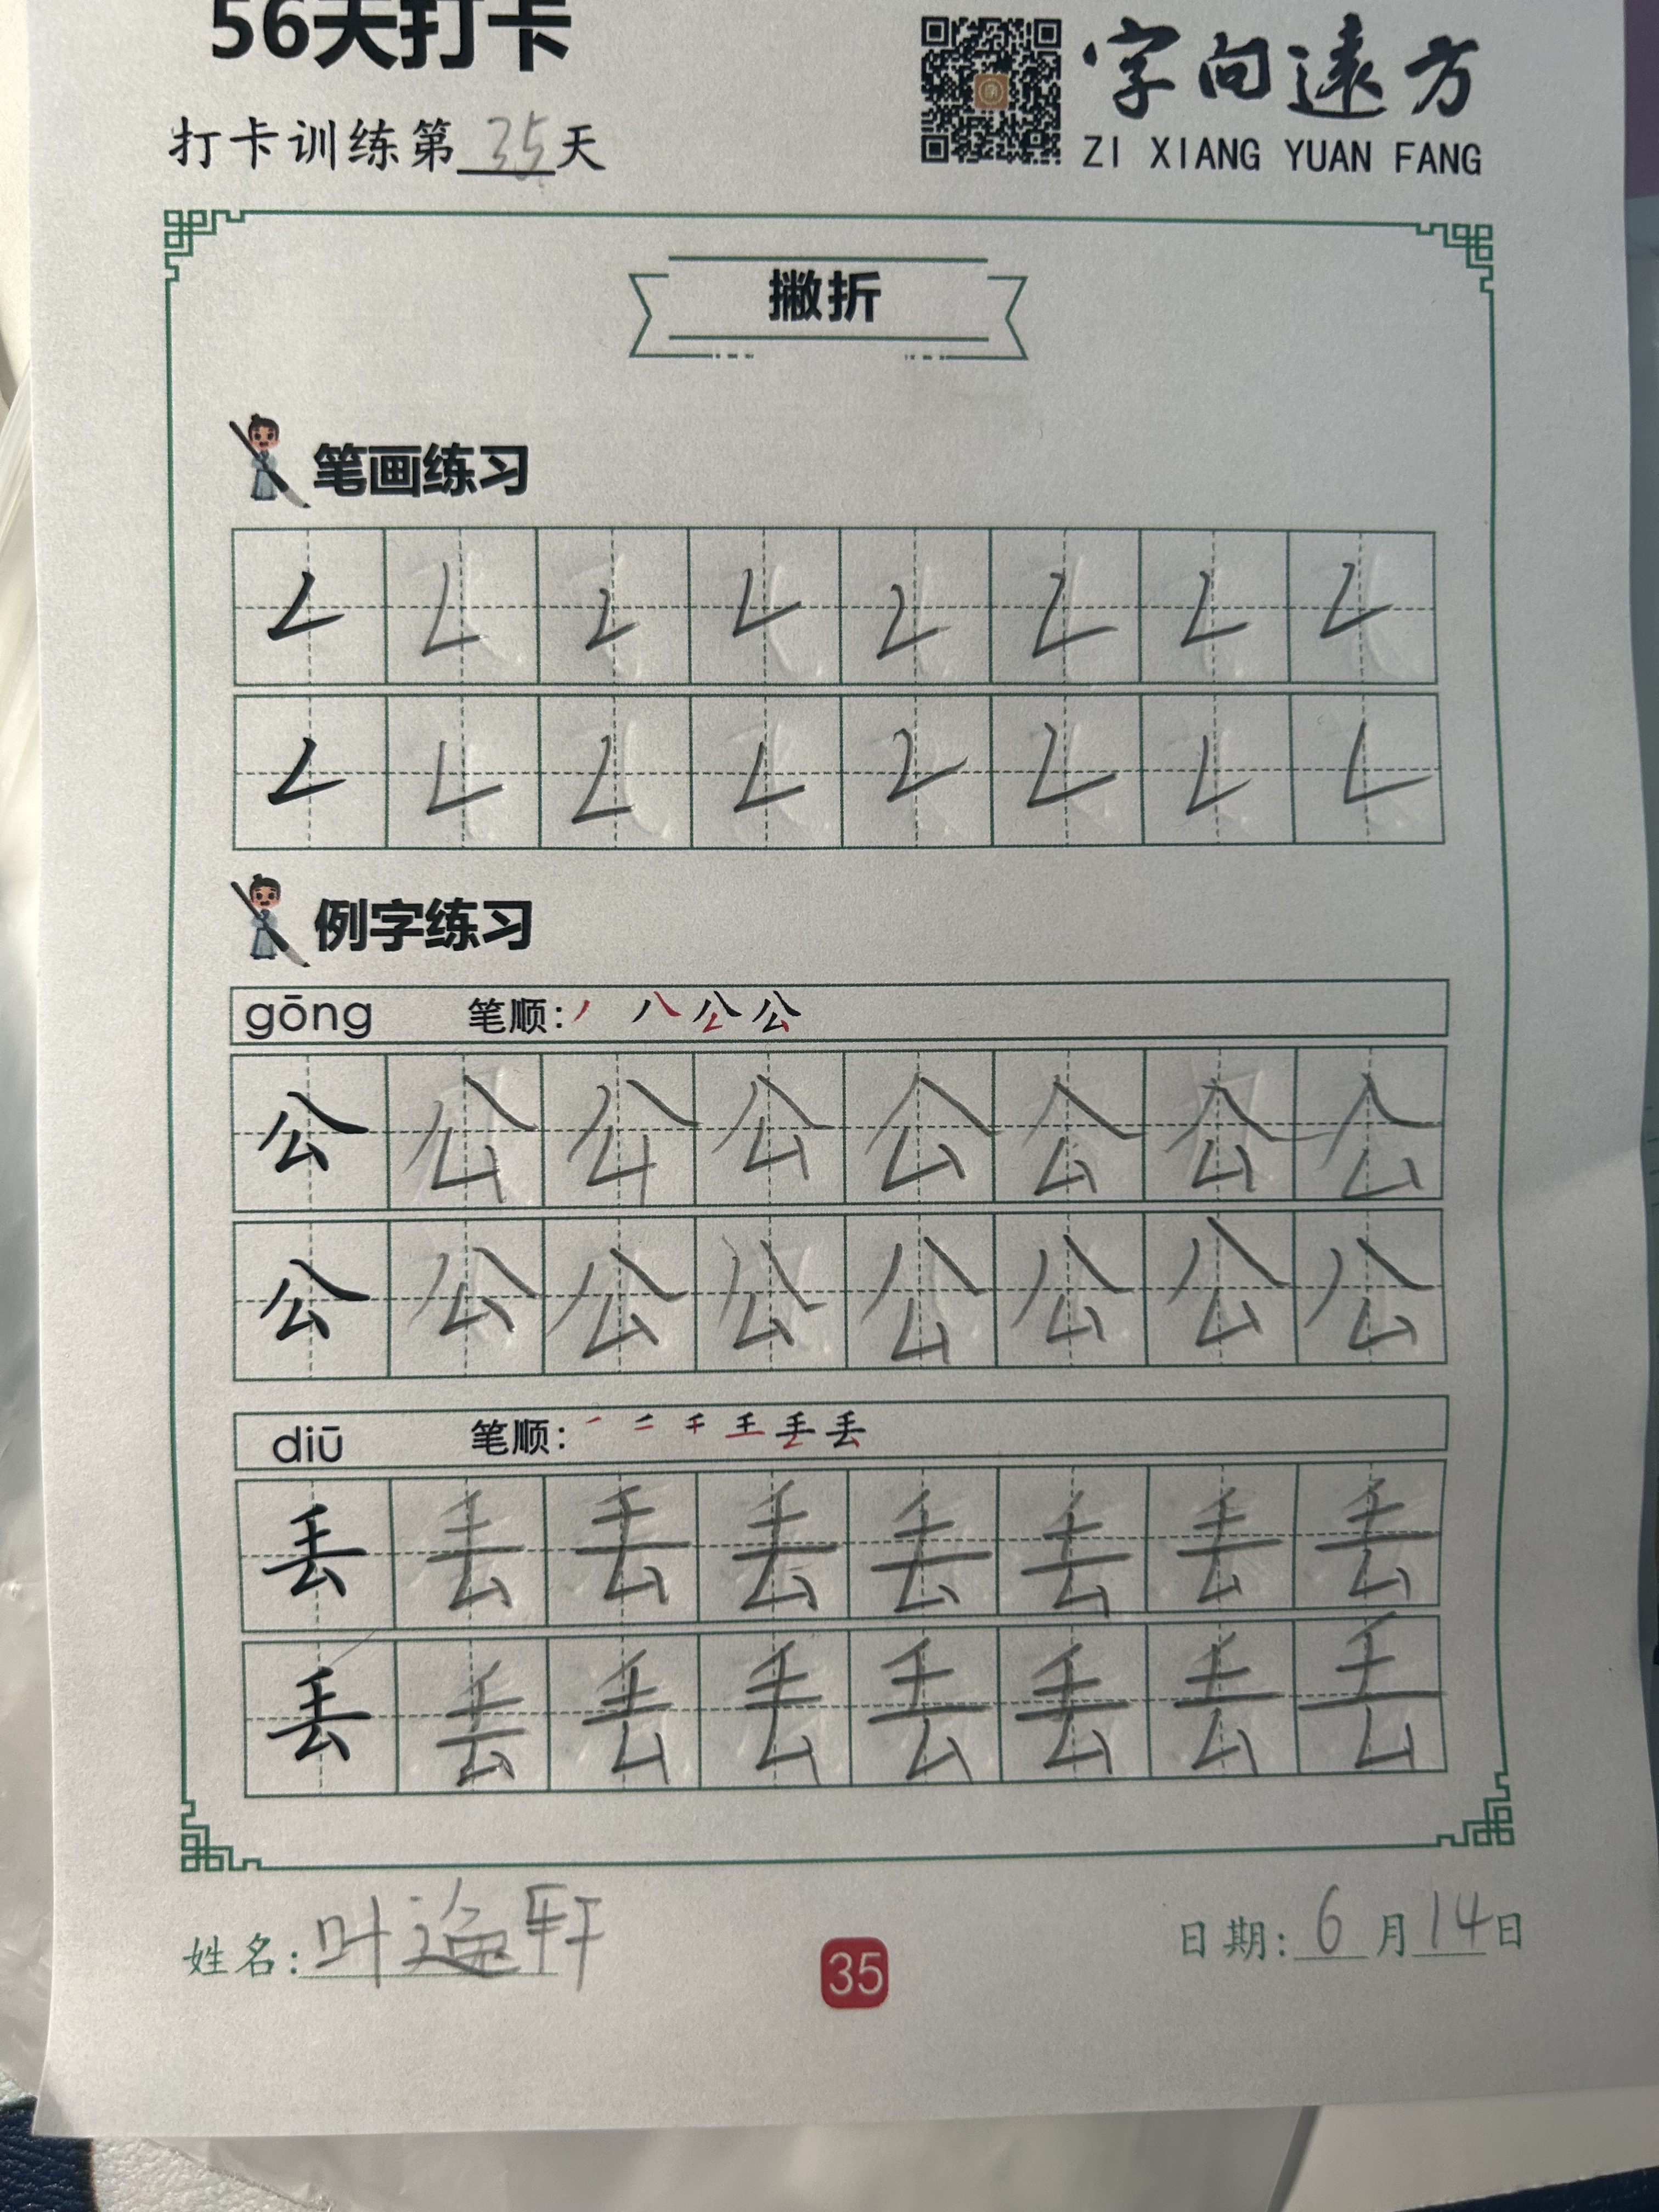 56天打卡
字向遠方
打卡训练第35天
ZI XIANG YUAN FANG
撇折
笔画练习
𠃋 𠃋 𠃋 𠃋 𠃋 𠃋 𠃋 𠃋
𠃋 𠃋 𠃋 𠃋 𠃋 𠃋 𠃋 𠃋
例字练习
gōng 笔顺:
公 公 公 公 公 公 公 公
公 公 公 公 公 公 公 公
diū 笔顺:
丢 丢 丢 丢 丢 丢 丢 丢
丢 丢 丢 丢 丢 丢 丢 丢
姓名:叶 轩
35
日期:6月14日